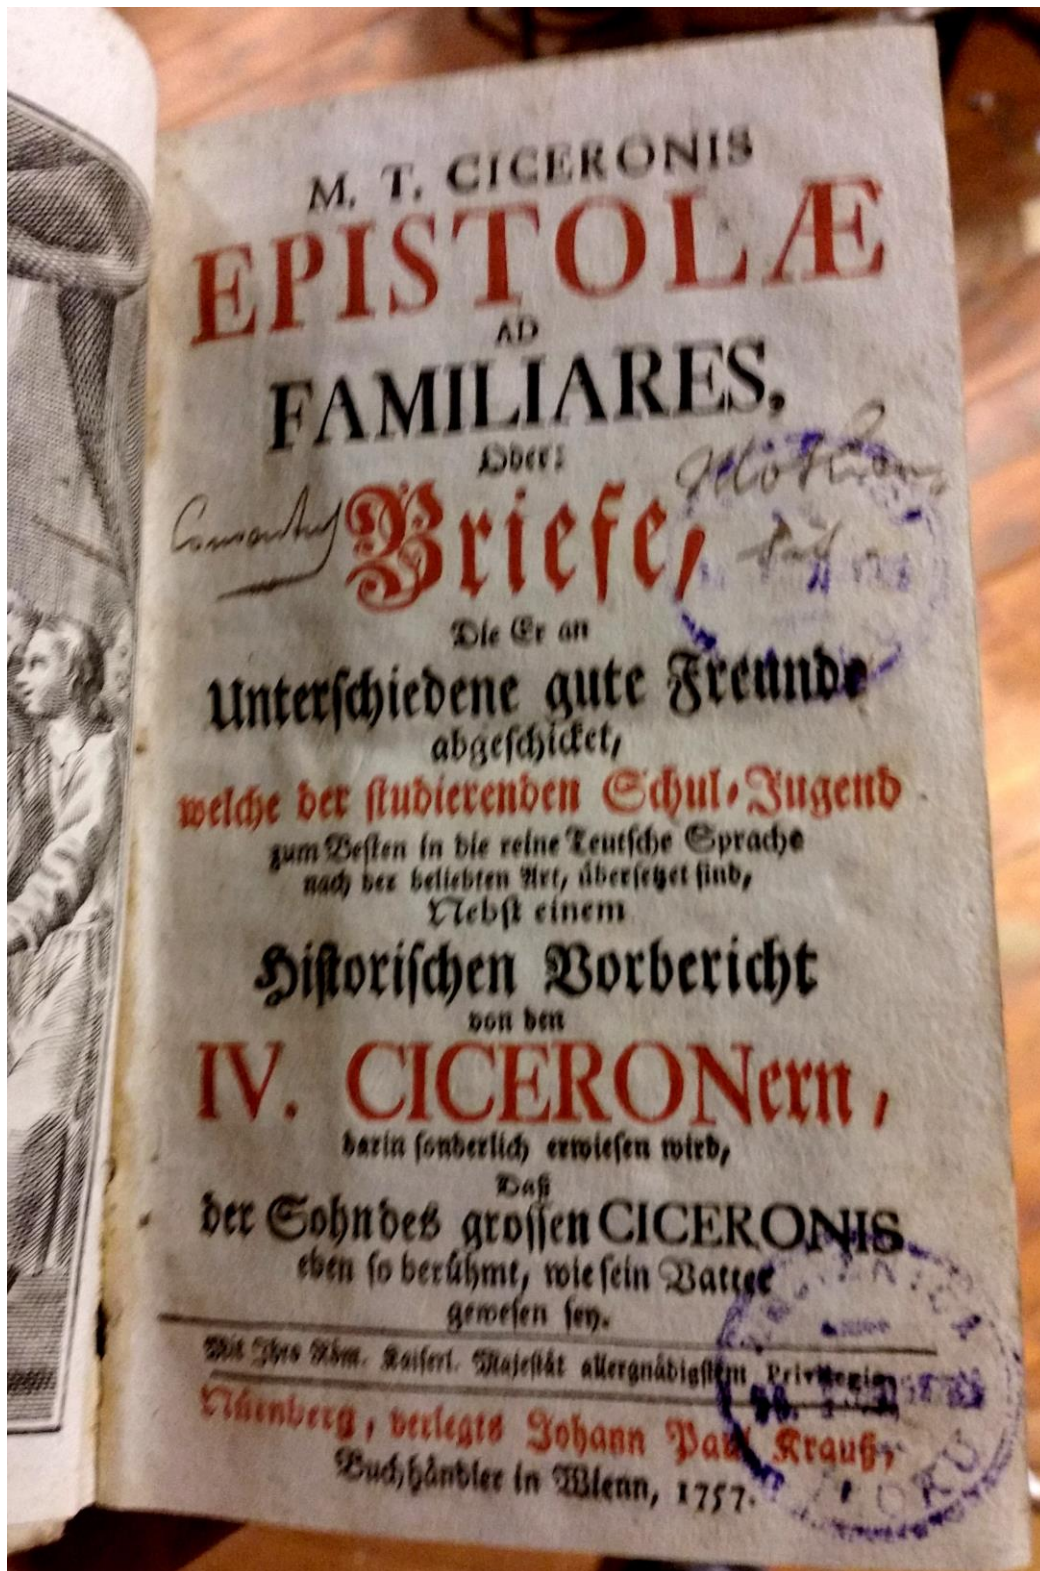 M. T. CICERONIS
EPISTOLÆ
AD
FAMILIARES,
Oder:
Briefe,
Die Er an
Unterschiedene gute Freunde
abgeschicket,
welche der studierenden Schul-Jugend
zum Besten in die reine Teutsche Sprache
nach der beliebten Art, übersetzet sind,
Nebst einem
Historischen Vorbericht
von den
IV. CICERONern,
darin sonderlich erwiesen wird,
Daß
der Sohn des grossen CICERONIS
eben so berühmt, wie sein Vatter
gewesen sey.
Mit Ihro Röm. Kaiserl. Majestät allergnädigstem Privilegio.
Nürnberg, verlegts Johann Paul Krauß,
Buchhändler in Wienn, 1757.